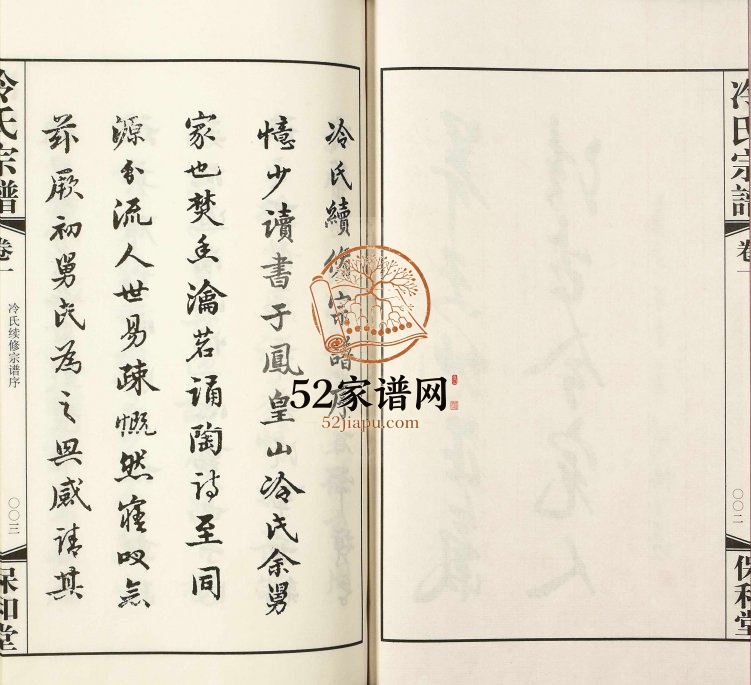 冷氏宗譜
卷一
〇〇二
保和堂
冷氏續修宗譜序
憶少讀書于鳳皇山冷氏余舅
家也焚香瀹茗誦陶詩至同
源分流人世易疎慨然寤叹念
茲厥初舅氏為之興感請其
冷氏宗譜
卷一
冷氏续修宗谱序
〇〇三
保和堂
52家谱网
52jiapu.com